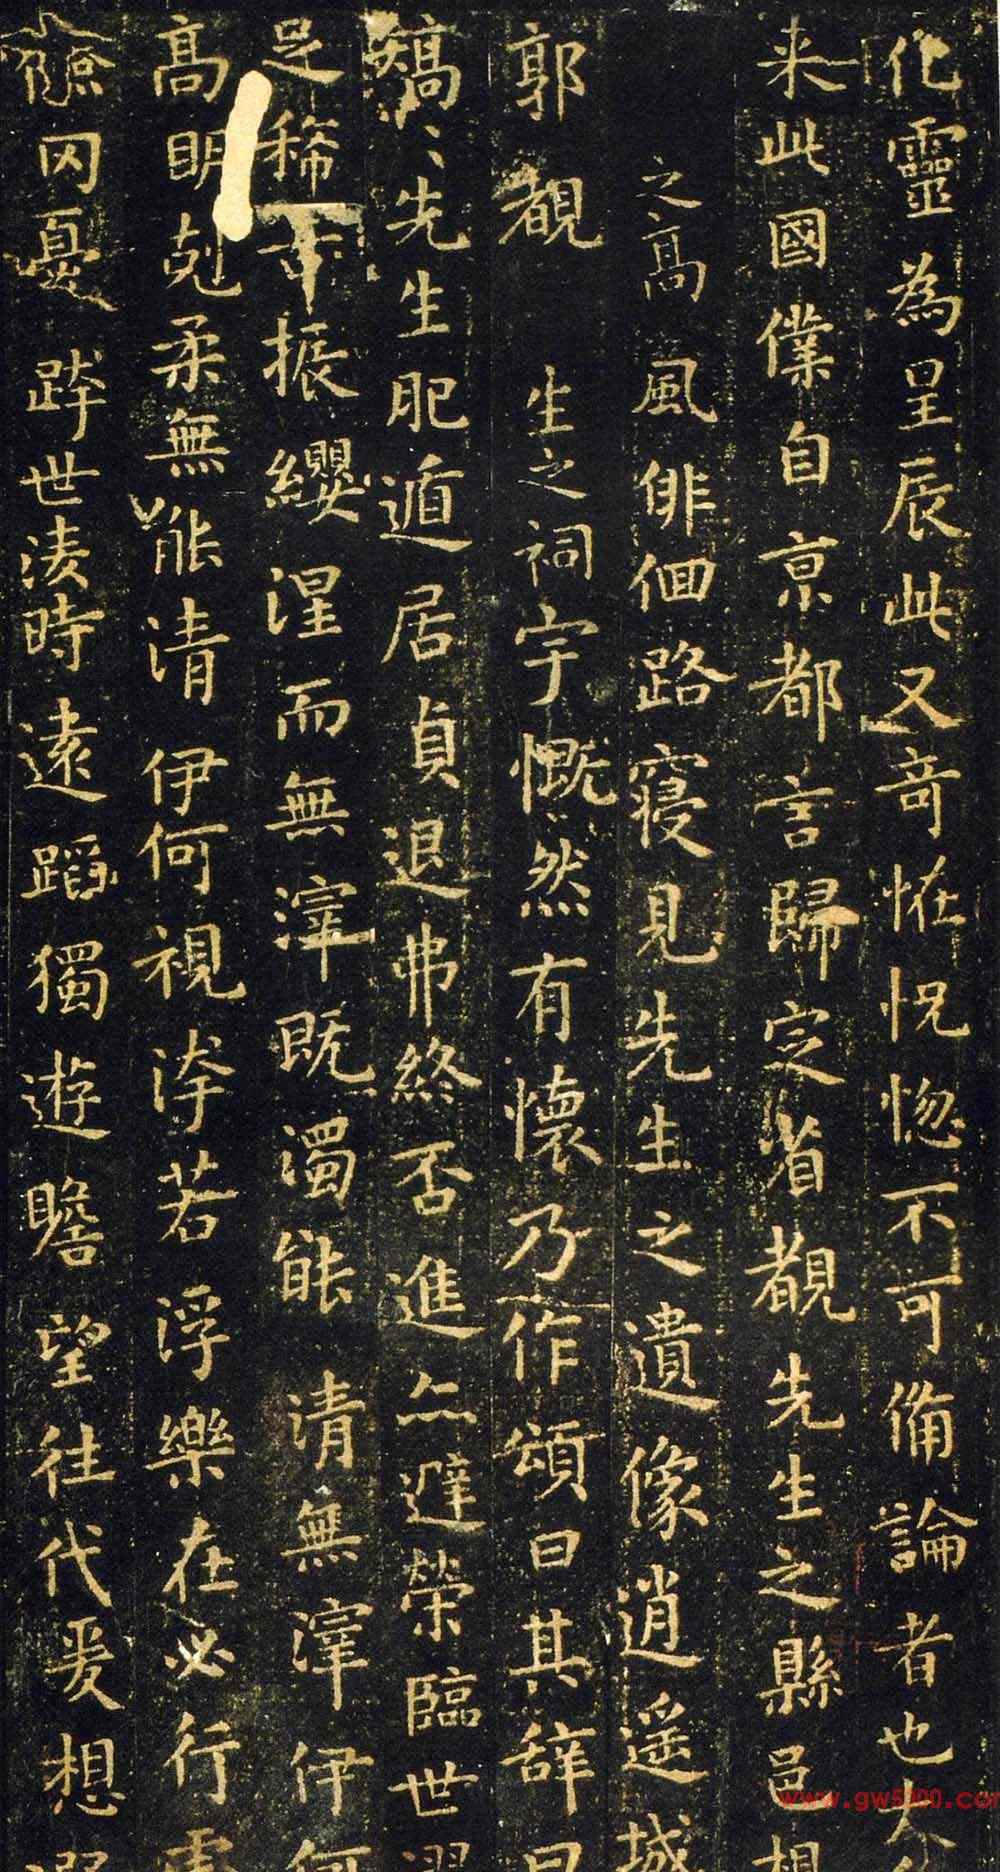 化靈為星辰此又奇怪怳惚不可備論者也大人
来此國僕自京都言歸定省覩先生之縣邑想
之高風徘徊路寢見先生之遺像逍遥城
郭覩 生之祠宇慨然有懷乃作頌曰其辭曰
矯〻先生肥遁居貞退弗終否進亦避榮臨世濯
足稀古振纓涅而無滓既濁能清無滓伊何
高明剋柔無能清伊何視洿若浮樂在必行處
儉罔憂跨世淩時遠蹈獨遊瞻望往代爰想遐
www.gw5000.com